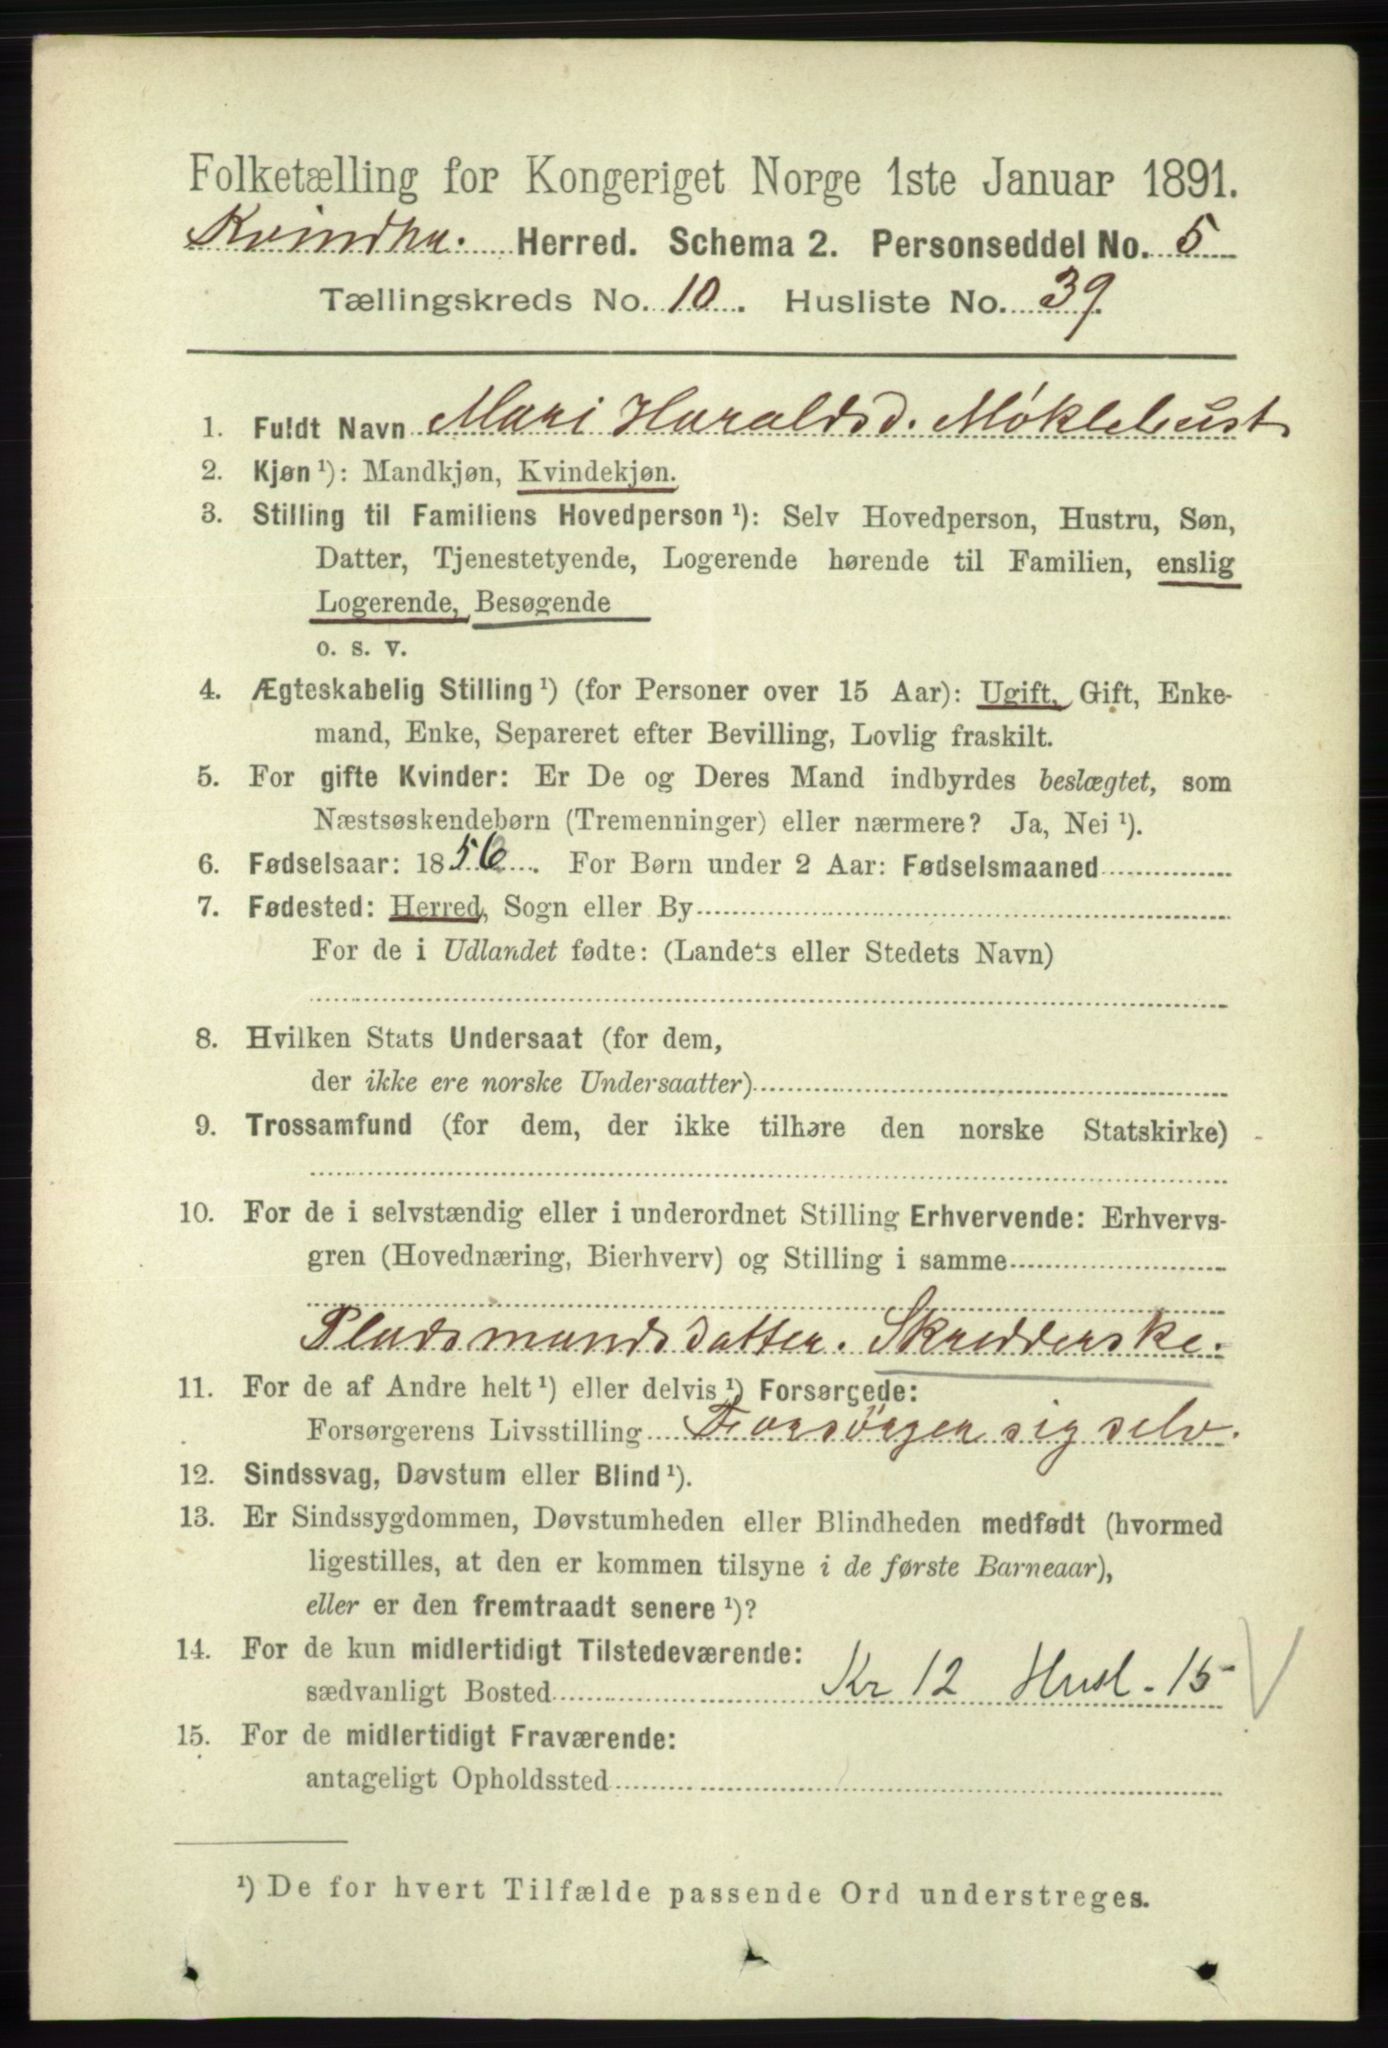 Folketælling for Kongeriget Norge 1ste Januar 1891.
Kvindhr. Herred. Schema 2. Personseddel No. 5
Tællingskreds No. 10. Husliste No. 39.
1. Fuldt Navn Mari Haraldsd. Møklebust
2. Kjøn ¹): Mandkjøn, Kvindekjøn.
3. Stilling til Familiens Hovedperson ¹): Selv Hovedperson, Hustru, Søn,
Datter, Tjenestetyende, Logerende hørende til Familien, enslig
Logerende, Besøgende
o. s. v.
4. Ægteskabelig Stilling ¹) (for Personer over 15 Aar): Ugift, Gift, Enke-
mand, Enke, Separeret efter Bevilling, Lovlig fraskilt.
5. For gifte Kvinder: Er De og Deres Mand indbyrdes beslægtet, som
Næstsøskendebørn (Tremenninger) eller nærmere? Ja, Nei ¹).
6. Fødselsaar: 1856. For Børn under 2 Aar: Fødselsmaaned
7. Fødested: Herred, Sogn eller By
For de i Udlandet fødte: (Landets eller Stedets Navn)
8. Hvilken Stats Undersaat (for dem,
der ikke ere norske Undersaatter)
9. Trossamfund (for dem, der ikke tilhøre den norske Statskirke)
10. For de i selvstændig eller i underordnet Stilling Erhvervende: Erhvervs-
gren (Hovednæring, Bierhverv) og Stilling i samme
Pladsmandsdatter. Skredderske.
11. For de af Andre helt ¹) eller delvis ¹) Forsørgede:
Forsørgerens Livsstilling Forsörger sig selv.
12. Sindssvag, Døvstum eller Blind ¹).
13. Er Sindssygdommen, Døvstumheden eller Blindheden medfødt (hvormed
ligestilles, at den er kommen tilsyne i de første Barneaar),
eller er den fremtraadt senere ¹)?
14. For de kun midlertidigt Tilstedeværende:
sædvanligt Bosted Kr 12 Husl. 15
15. For de midlertidigt Fraværende:
antageligt Opholdssted
¹) De for hvert Tilfælde passende Ord understreges.